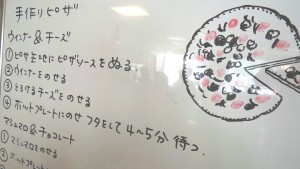 手作りピザ
ウインナー&チーズ
①ピザ生地にピザソースをぬる
②ウインナーをのせる
③とろけるチーズをのせる
④ホットプレートにのせフタをして4~5分待つ
マシュマロ&チョコレート
①マシュマロをのせる
②ホットプレート